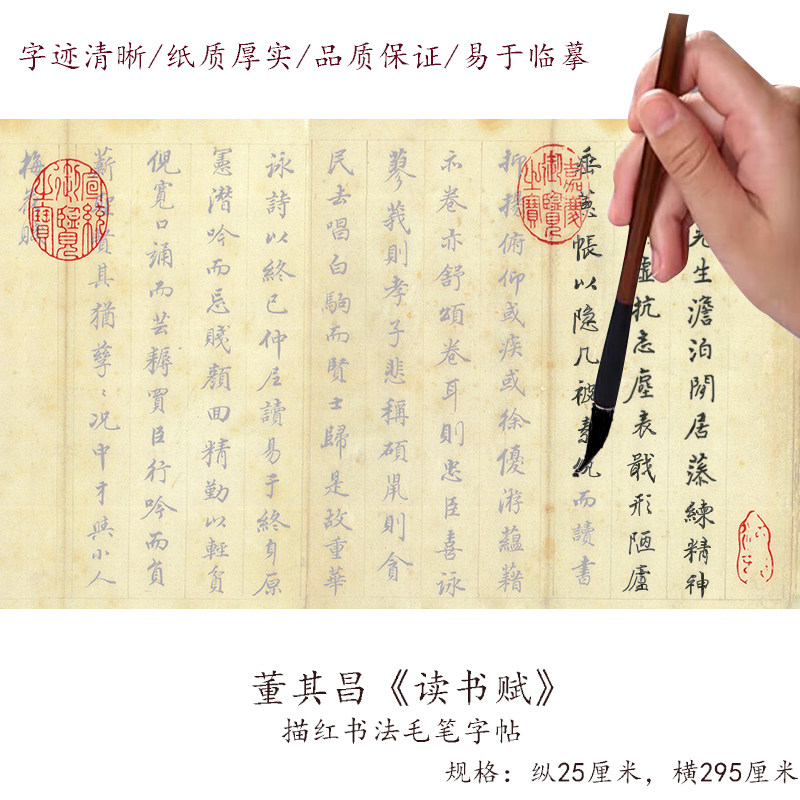 字迹清晰/纸质厚实/品质保证/易于临摹
先生澹泊閒居藻練精神
虚抗志塵表戢形陋廬
垂蕙帳以隐几被素紈而讀書
抑揚俯仰或疾或徐優游蘊藉
亦卷亦舒頌卷耳則忠臣喜詠
蓼莪則孝子悲稱碩鼠則貪
民去唱白駒而賢士歸是故重華
詠詩以終已仲尼讀易于終身原
憲潛吟而忘賤顏回精勤以輕貧
倪寬口誦而芸耨買臣行吟而負
薪聖賢其猶孳〻况中才與小人
梅花賦
嘉慶御覽之寶
宣統御覽之寶
董其昌《读书赋》
描红书法毛笔字帖
规格：纵25厘米，横295厘米